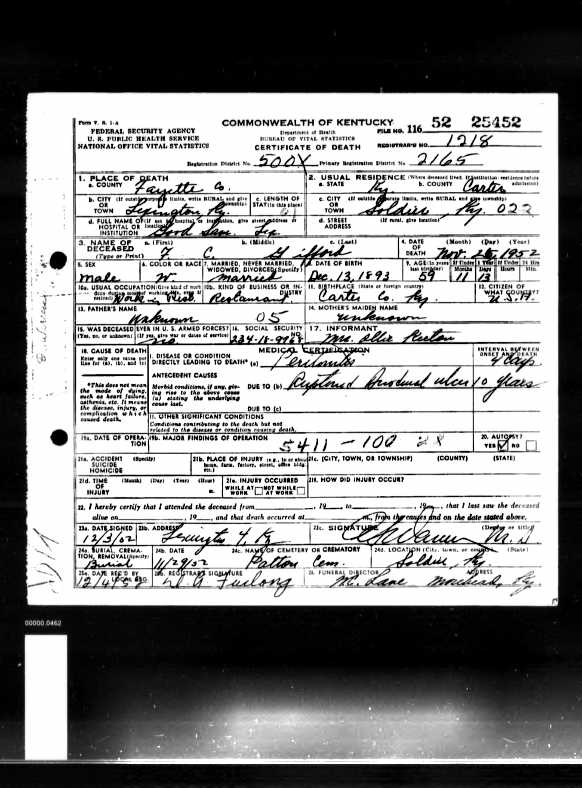 Form V. S. 1-A
FEDERAL SECURITY AGENCY
U. S. PUBLIC HEALTH SERVICE
NATIONAL OFFICE VITAL STATISTICS
COMMONWEALTH OF KENTUCKY
Department of Health
BUREAU OF VITAL STATISTICS
CERTIFICATE OF DEATH
FILE NO. 116 52 25452
REGISTRAR'S NO. 1218
Registration District No. 500X Primary Registration District No. 2165
1. PLACE OF DEATH
a. COUNTY Fayette Co.
b. CITY
OR
TOWN Lexington, Ky.
c. LENGTH OF
STAY (in this place)
d. FULL NAME OF
HOSPITAL OR
INSTITUTION Good Sam. Lex
2. USUAL RESIDENCE (Where deceased lived. If institution: residence before admission)
a. STATE Ky. b. COUNTY Carter
c. CITY
OR
TOWN Soldier, Ky. 022
d. STREET
ADDRESS (If rural, give location)
3. NAME OF
DECEASED
(Type or Print)
a. (First) b. (Middle) c. (Last)
C Gifford
4. DATE
OF
DEATH (Month) (Day) (Year)
Nov. 26, 1952
5. SEX
male
6. COLOR OR RACE
W
7. MARRIED, NEVER MARRIED, WIDOWED, DIVORCED (Specify)
married
8. DATE OF BIRTH
Dec. 13, 1893
9. AGE (In years last birthday)
59
Months Days Hours Min.
11 13
10a. USUAL OCCUPATION
Work in Rest.
10b. KIND OF BUSINESS OR INDUSTRY
Restaurant
11. BIRTHPLACE (State or foreign country)
Carter Co. Ky.
12. CITIZEN OF
WHAT COUNTRY?
U.S.A
13. FATHER'S NAME
Unknown 05
14. MOTHER'S MAIDEN NAME
unknown
15. WAS DECEASED EVER IN U. S. ARMED FORCES?
(Yes, no, or unknown) (If yes, give war or dates of service)
no
16. SOCIAL SECURITY
NO.
17. INFORMANT
Mrs. Ollie
18. CAUSE OF DEATH
Enter only one cause per line for (a), (b), and (c)
*This does not mean the mode of dying, such as heart failure, asthenia, etc. It means the disease, injury, or complication which caused death.
MEDICAL CERTIFICATION
I. DISEASE OR CONDITION
DIRECTLY LEADING TO DEATH* (a) Peritonitis
ANTECEDENT CAUSES
Morbid conditions, if any, giving rise to the above cause (a) stating the underlying cause last.
DUE TO (b) Ruptured Duodenal ulcer 10 years
DUE TO (c)
INTERVAL BETWEEN
ONSET AND DEATH
4 days
II. OTHER SIGNIFICANT CONDITIONS
Conditions contributing to the death but not related to the disease or condition causing death.
19a. DATE OF OPERATION
19b. MAJOR FINDINGS OF OPERATION
5411 - 100 28
20. AUTOPSY?
YES NO
21a. ACCIDENT (Specify)
SUICIDE
HOMICIDE
21b. PLACE OF INJURY (e.g., in or about home, farm, factory, street, office bldg., etc.)
21c. (CITY, TOWN, OR TOWNSHIP) (COUNTY) (STATE)
21d. TIME (Month) (Day) (Year) (Hour)
OF
INJURY m.
21e. INJURY OCCURRED
WHILE AT WORK NOT WHILE AT WORK
21f. HOW DID INJURY OCCUR?
22. I hereby certify that I attended the deceased from , 19 , to , 19 , that I last saw the deceased
alive on , 19 , and that death occurred at m., from the causes and on the date stated above.
23a. DATE SIGNED
12/3/52
23b. ADDRESS
Lexington 4, Ky
23c. SIGNATURE (Degree or title)
M. D
24a. BURIAL, CREMATION, REMOVAL (Specify)
Burial
24b. DATE
11/29/52
24c. NAME OF CEMETERY OR CREMATORY
Patton Cem.
24d. LOCATION (City, town, or county) (State)
Soldier, Ky.
25a. DATE REC'D BY LOCAL REG.
25b. REGISTRAR'S SIGNATURE
Furlong
26. FUNERAL DIRECTOR ADDRESS
Mc. Lane Morehead, Ky.
00000.0462